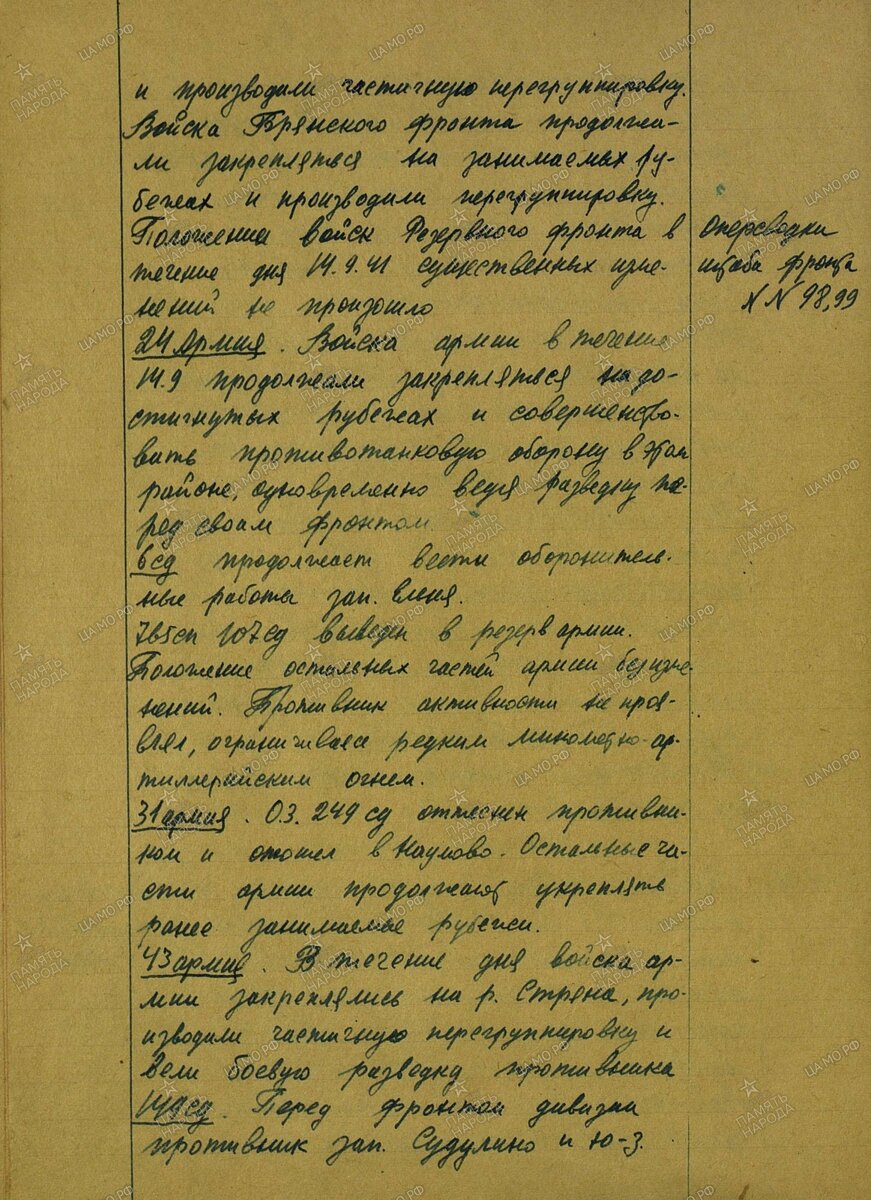 и производили частичную перегруппировку.
Войска Брянского фронта продолжа-
ли закрепляться на занимаемых ру-
бежах и производили перегруппировку.
Положении войск Резервного фронта в
течение дня 14.9.41 существенных изме-
нений не произошло
Оперсводки
штаба фронта
№№ 98,99
24 армия. Войска армии в течение
14.9 продолжали закрепляться на до-
стигнутых рубежах и совершенство-
вать противотанковую оборону в этом
районе, одновременно ведя разведку пе-
ред своим фронтом
6 сд продолжает вести оборонитель-
ные работы зап. Ельня.
765сп 107сд выведен в резерв армии.
Положение остальных частей армии без изме-
нений. Противник активности не проя-
влял, ограничиваясь редким минометно-ар-
тиллерийским огнем.
31 армия. О.З. 249 сд оттеснен противни-
ком и отошел в Наумово. Остальные ча-
сти армии продолжают укреплять
ранее занимаемые рубежи.
43 армия. В течение дня войска ар-
мии закреплялись на р. Стряна, про-
изводили частичную перегруппировку и
вели боевую разведку противника
149сд. Перед фронтом дивизии
противник зап. Судулино и ю-з.
ПАМЯТЬ НАРОДА
ЦАМО.РФ